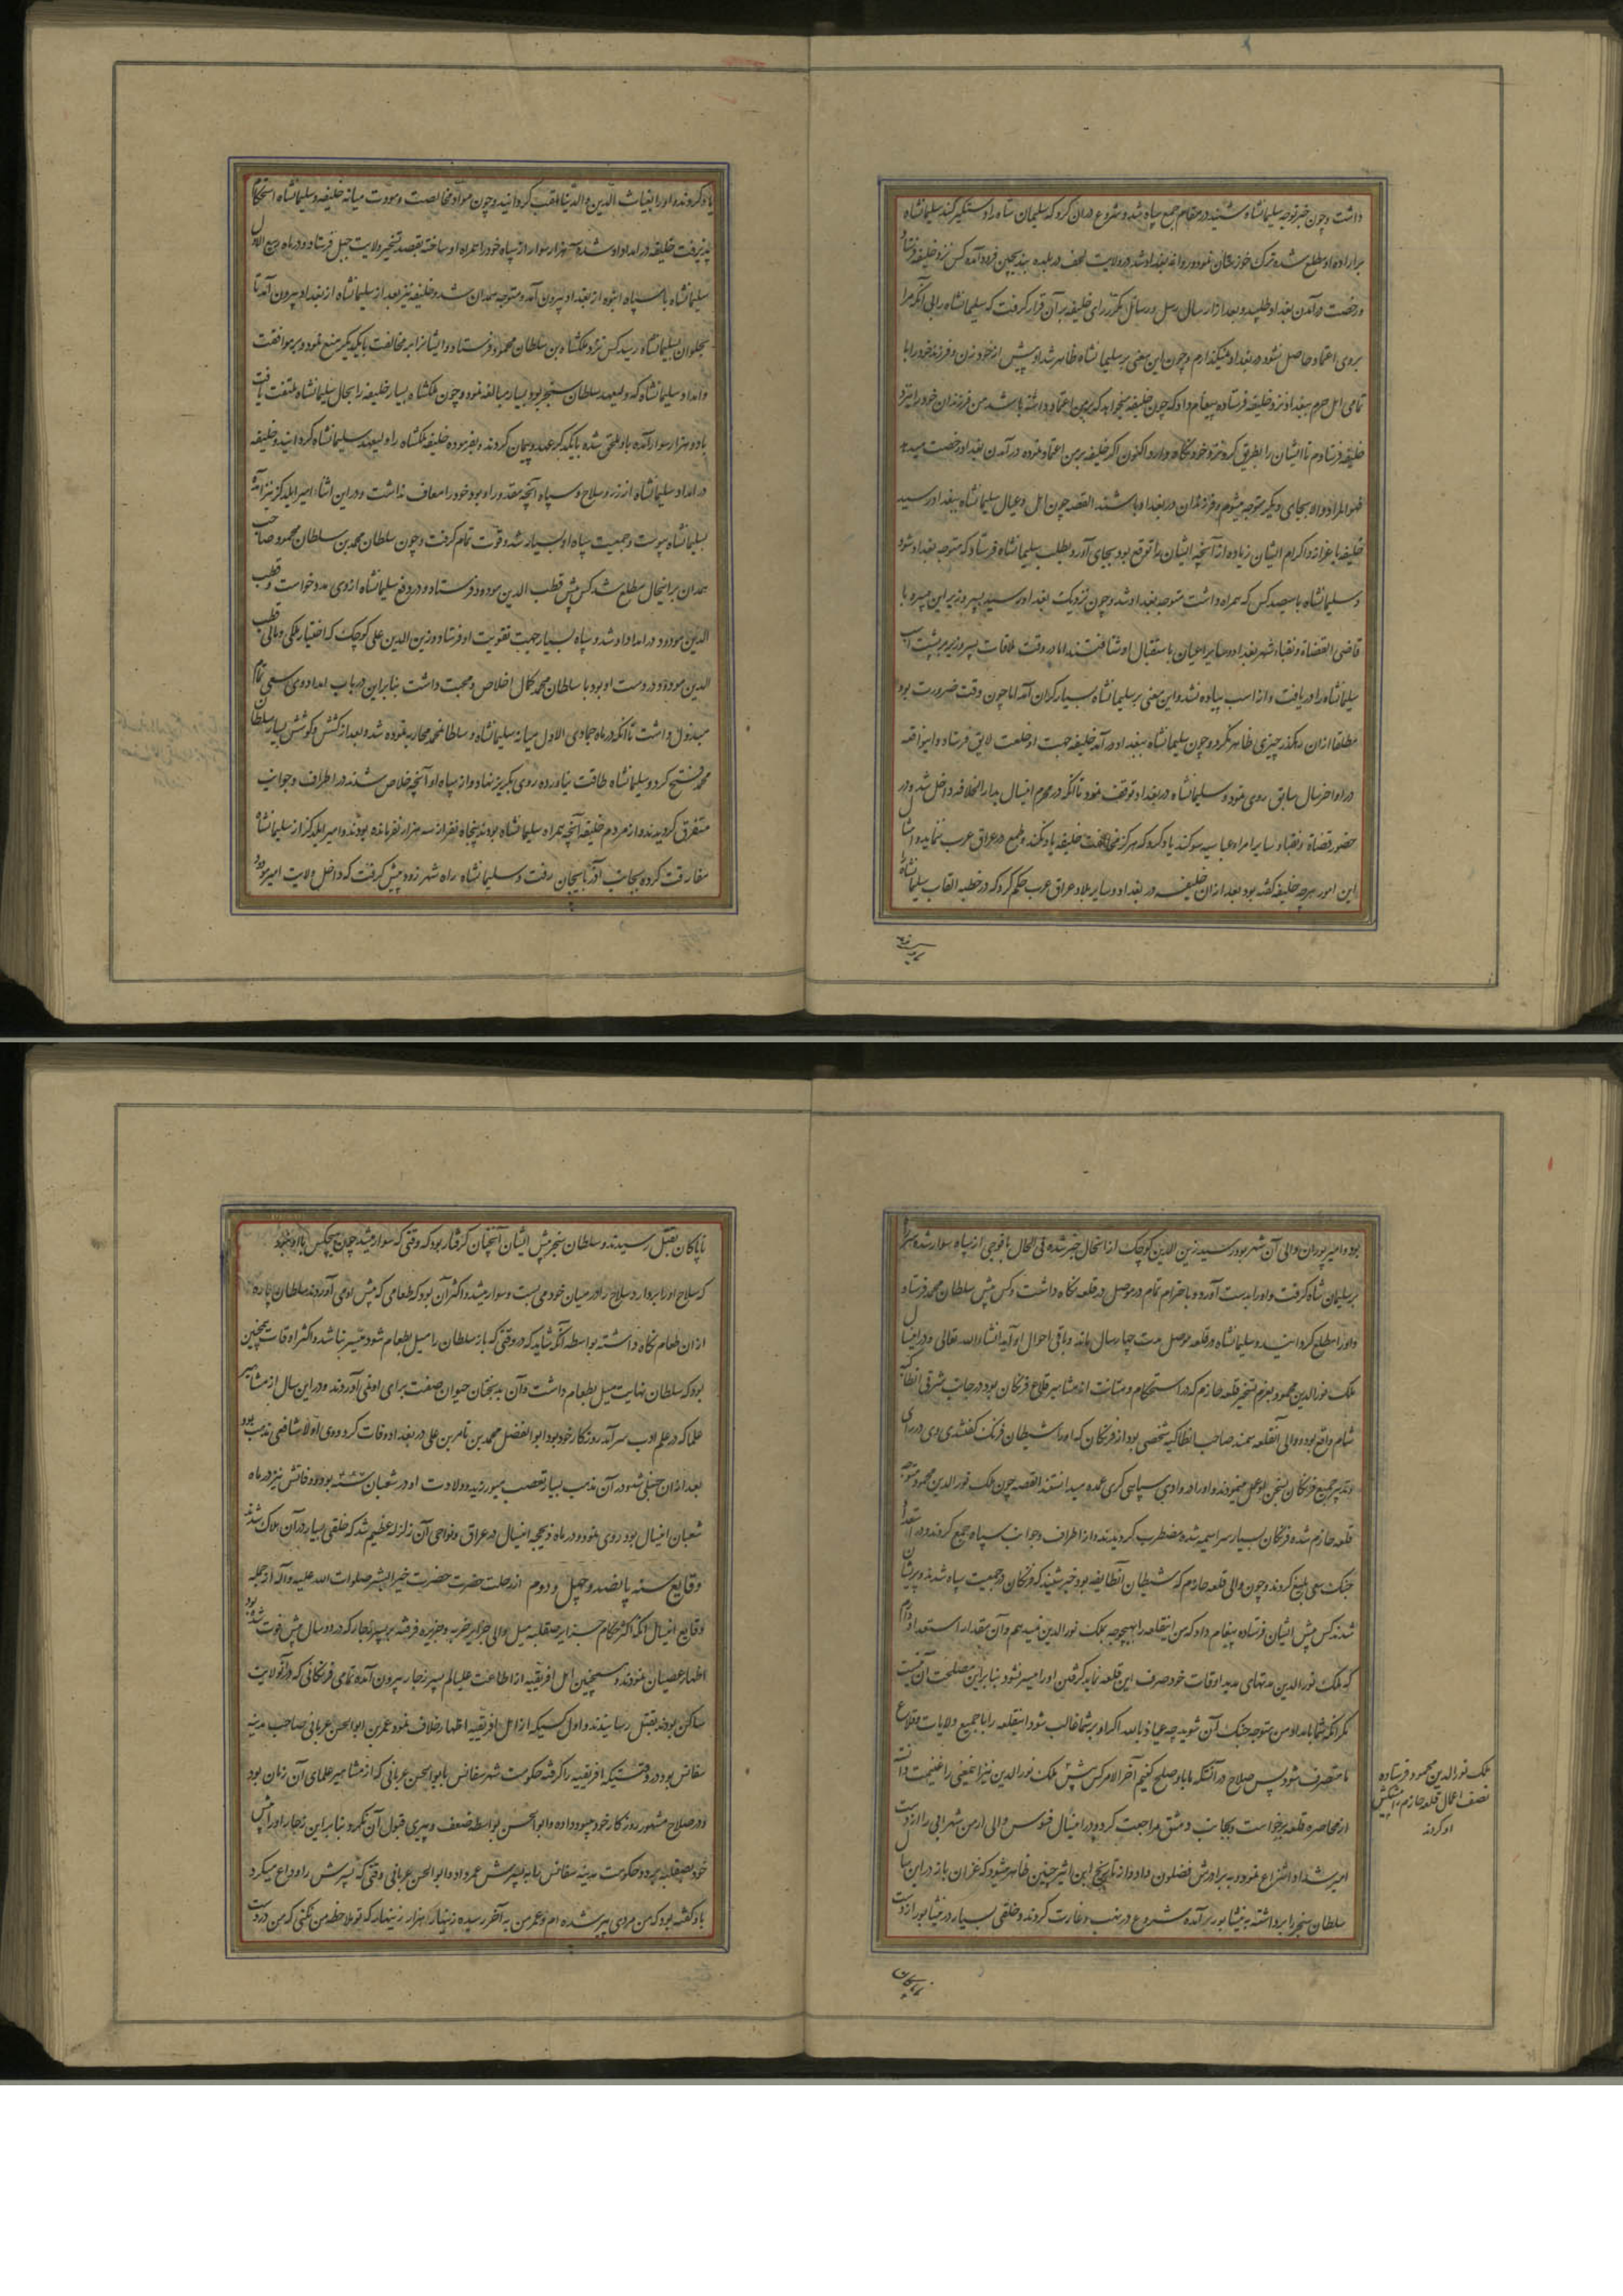 داشت و چون خبر توجه سلیمانشاه شنید در مقام جمع سپاه شد و شروع دران کرد که سلیمان شاه را دستگیر کند سلیمانشاه
بر اراده او مطلع شده ترک خوزستان نمود و روانه بغداد شد در ولایت لحف در بلده بندنیجین فرود آمد کس نزد خلیفه فرستاد
و رخصت درآمدن بغداد طلبید و بعد از ارسال رسل و رسائل مکرر رای خلیفه بر آن قرار گرفت که سلیمانشاه را بی آنکه مرا
بروی اعتماد حاصل نشود در بغداد نمیگذارم و چون این معنی بر سلیمانشاه ظاهر شد او پیش از خود زن و فرزند خود را با
تمامی اهل حرم ببغداد نزد خلیفه فرستاده پیغام داد که چون خلیفه میخواهد که بر من اعتماد داشته باشد من فرزندان خود را نزد
خلیفه فرستادم تا ایشان را بطریق گرو نزد خود نگاه دارد و اکنون اگر خلیفه بر من اعتماد نموده درآمدن بغداد رخصت میدهد
فهو المراد والا بجای دیگر متوجه میشوم و فرزندان در بغداد باشند القصه چون اهل و عیال سلیمانشاه ببغداد رسید
خلیفه با عزاز و اکرام ایشان زیاده از آنچه ایشان را توقع بود بجای آورد و بطلب سلیمانشاه فرستاد که متوجه بغداد شود
و سلیمانشاه با سیصد کس که همراه داشت متوجه بغداد شد و چون نزدیک بغداد رسید پسر وزیر ابن هبیره با
قاضی القضاة و نقباء شهر بغداد و سایر اعیان باستقبال او شتافتند اما در وقت ملاقات پسر وزیر بر پشت اسب
سلیمانشاه را دریافت و از اسب پیاده نشد و این معنی بر سلیمانشاه بسیار گران آمد اما چون وقت ضرورت بود
مطلقا ازان رهگذر چیزی ظاهر نکرد و چون سلیمانشاه ببغداد درآمد خلیفه جهت او خلعت لایق فرستاد و این واقعه
در اواخر سال سابق روی نمود و سلیمانشاه در بغداد توقف نمود تا آنکه در محرم امسال بدار الخلافه داخل شد و در
حضور قضاة و نقبا و سایر امراء عباسیه سوگند یاد کرد که هرگز مخالفت خلیفه یاد نکند و طمع در عراق عرب ننماید و امثال
این امور هرچه خلیفه گفته بود بعد ازان خلیفه در بغداد و سایر بلاد عراق عرب حکم کرد که در خطبه القاب سلیمانشاه
یاد کردند و او را بغیاث الدین والدنیا ملقب گردانید و چون مواد مخالصت و مودت میانه خلیفه و سلیمانشاه استحکام
پذیرفت خلیفه در امداد او شده سه هزار سوار از سپاه خود را همراه او ساخته بقصد تسخیر ولایت جبل فرستاد و در ماه ربیع الاول
سلیمانشاه با سپاه انبوه از بغداد بیرون آمد و متوجه همدان شد و خلیفه نیز بعد از سلیمانشاه از بغداد بیرون آمد تا
بحلوان بسلیمانشاه رسید کس نزد ملکشاه بن سلطان محمود فرستاد و ایشانرا به مخالفت با یکدیگر منع نمود و بر موافقت
و امداد سلیمانشاه که ولیعهد سلطان سنجر بود بسیار مبالغه نمود و چون ملکشاه بسیار خلیفه را بحال سلیمانشاه ملتفت یافت
با دو هزار سوار آمده باو ملحق شده با یکدیگر عهد و پیمان کردند و بفرموده خلیفه ملکشاه را ولیعهد سلیمانشاه گردانید و خلیفه
در امداد سلیمانشاه از زر و سلاح و سپاه آنچه مقدور او بود خود را معاف نداشت و در این اثنا امیر ایلدکز نیز آمده
بسلیمانشاه پیوست و جمعیت سپاه او بسیار شد و قوت تمام گرفت و چون سلطان محمد بن سلطان محمود صاحب
همدان بر اینحال مطلع شد کس پیش قطب الدین مودود فرستاد و در دفع سلیمانشاه از وی مدد خواست و قطب
الدین مودود در امداد او شد و سپاه بسیار جهت تقویت او فرستاد و زین الدین علی کوچک که اختیار ملکی و مالی قطب
الدین مودود در دست او بود با سلطان محمد کمال اخلاص و محبت داشت بنابراین در باب امداد وی سعی تمام
مبذول داشت تا آنکه در ماه جمادی الاول میانه سلیمانشاه و سلطان محمد محاربه نموده شد و بعد از کشش و کوشش بسیار سلطان
محمد فتح کرد و سلیمانشاه طاقت نیاورده روی بگریز نهاد و از سپاه او آنچه خلاص شدند در اطراف و جوانب
متفرق گردیدند و از مردم خلیفه آنچه همراه سلیمانشاه بودند پنجاه نفر از سه هزار نفر مانده بودند و امیر ایلدکز از سلیمانشاه
مفارقت کرده بجانب آذربایجان رفت و سلیمانشاه راه شهرزور پیش گرفت که داخل ولایت امیر مودود
بود و امیر بوران والی آن شهر بود رسید زین الدین کوچک از اینحال خبر شده فی الحال با فوجی از سپاه سوار شده سر راه
بر سلیمان شاه گرفت و او را بدست آورد و با احترام تمام در موصل در قلعه نگاه داشت و کس پیش سلطان محمد فرستاد
و او را مطلع گردانید و سلیمانشاه در قلعه موصل مدت چهار سال ماند و باقی احوال او آید انشاء الله تعالی و در امسال
ملک نورالدین محمود بعزم تسخیر قلعه حازم که در استحکام و متانت از مشاهیر قلاع فرنگان بود در جانب شرقی انطاکیه
شام واقع بود و والی آنقلعه سمند صاحب انطاکیه شخصی بود از فرنگان که او را شیطان فرنگ گفتندی وی در رای
و تدبیر جمیع فرنگان بسخن او عمل مینمودند و او را در وادی سپاهی گری عمده میدانستند القصه چون ملک نورالدین محمود متوجه
قلعه حازم شده فرنگان بسیار سراسیمه شده مضطرب گردیدند و از اطراف و جوانب سپاه جمع کردند و در استعداد
جنگ سعی بلیغ کردند و چون والی قلعه حازم که شیطان آنطایفه بود خبر شنید که فرنگان در جمعیت سپاه شدند و پریشان
شدند کس پیش ایشان فرستاده پیغام داد که من اینقلعه را بهیچوجه بملک نورالدین نمیدهم و آن مقدار استعداد دارم
که ملک نورالدین مدتهای مدید اوقات خود صرف این قلعه نماید گرفتن او را میسر نشود بنابراین مصلحت آن نیست
مگر آنکه شما بامداد من متوجه جنگ آن شوید چه عیاذ بالله اگر او بر شما غالب شود اینقلعه را با جمیع ولایات و قلاع
ما متصرف شود پس صلاح در آنستکه ما باو صلح کنیم آخر الامر کس پیش ملک نورالدین نیز اینمعنی را غنیمت دانسته
از محاصره قلعه برخواست و بجانب دمشق مراجعت کرد و در امسال والی ارمن شهر انی را از دست
امیر شداد انتزاع نمود و به برادرش فضلون داد و از تاریخ ابن اثیر چنین ظاهر میشود که غزان باز در این سال
سلطان سنجر را برداشته به نیشابور برآمده شروع در نهب و غارت کردند و خلقی بسیار در نیشابور از دست
ملک نورالدین محمود فرستاده
نصف اعمال قلعه حازم پیشکش
او کردند
ناپاکان بقتل رسیدند و سلطان سنجر پیش ایشان آنچنان گرفتار بود که وقتی که سوار میشد چون هیچکس با او نبود
که سلاح او را بردارد سلاح را در میان خود می بست و سوار میشد و اکثر آن بود که طعامی که پیش او می آوردند سلطان پاره
ازان طعام نگاه داشته بواسطه آنکه شاید که در وقتی که باز سلطان را میل بطعام شود میسر نباشد و اکثر اوقات همچنین
بود که سلطان نهایت میل بطعام داشت و آن بدبختان حیوان صفت برای او نمی آوردند و در این سال از مشاهیر
علما که در علم ادب سرآمد روزگار خود بود ابو الفضل محمد بن ناصر بن علی در بغداد وفات کرد و وی اولا شافعی مذهب بود
بعد ازان حنبلی شد و در آن مذهب بسیار تعصب میورزید و ولادت او در شعبان سنه ۴۶۷ بود و وفاتش نیز در ماه
شعبان امسال بود روی نمود و در ماه ذیحجه امسال در عراق و نواحی آن زلزله عظیم شد که خلقی بسیار در آن هلاک شدند
وقایع سنه پانصد و چهل و دوم از رحلت حضرت حضرت خیر البشر صلوات الله علیه و آله از جمله
وقایع امسال آنکه اکثر حکام جزایر صقلیه میل والی جزایر غربیه و جزیره قرقنه بر پسر رجار که در دو سال پیش فوت شده بود
اظهار عصیان نمودند و همچنین اهل افریقیه از اطاعت علیالم پسر رجار بیرون آمده تمامی فرنگانی که در آنولایت
ساکن بودند بقتل رسانیدند و اول کسیکه از اهل افریقیه اظهار خلاف نمود عمر بن ابو الحسن غریانی صاحب مدینه
سفاقس بود در وقتیکه افریقیه را گرفته حکومت شهر سفاقس بابو الحسن غریانی که از مشاهیر علمای آن زمان بود
و در صلاح مشهور روزگار خود بود داده و ابو الحسن بواسطه ضعف و پیری قبول آن نکرد و بنابراین رجار او را پیش
خود بصقلیه برد و حکومت مدینه سفاقس را به پسرش عمر داد و ابو الحسن غریانی وقتی که پسرش را وداع میکرد
باو گفته بود که من مردی پیر شده ام و عمر من به آخر رسیده زینهار هزار زینهار که تو ملاحظه من نکنی که من در دست